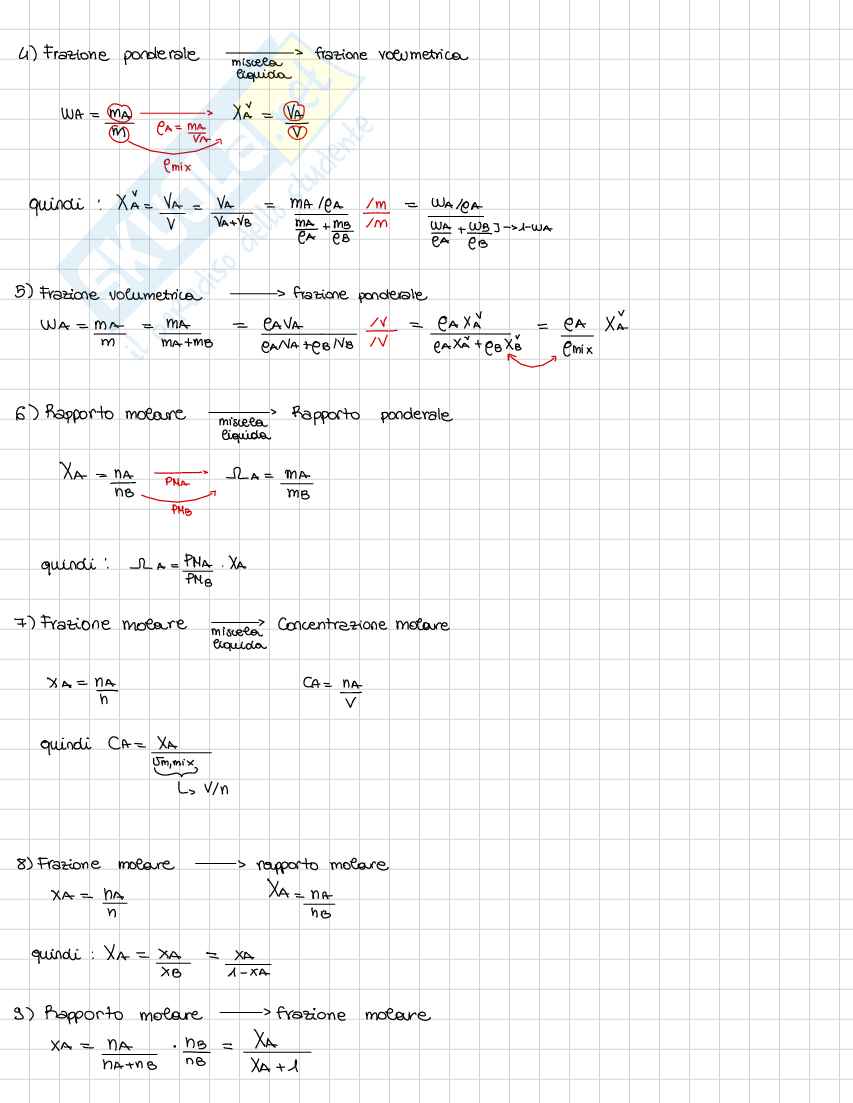 4) Frazione ponderale → miscela liquida frazione volumetrica
WA = mA/m → ρA = mA/VA XAᵛ = VA/V
ρmix
quindi : XAᵛ = VA/V = VA/(VA+VB) = (mA/ρA)/(mA/ρA + mB/ρB) /m /m = (WA/ρA)/(WA/ρA + WB/ρB) ] → 1-WA
5) Frazione volumetrica → frazione ponderale
WA = mA/m = mA/(mA+mB) = ρA VA/(ρA VA + ρB VB) /V /V = ρA XAᵛ/(ρA XAᵛ + ρB XBᵛ) = ρA/ρmix XAᵛ
6) Rapporto molare → miscela liquida Rapporto ponderale
XA = nA/nB → PMA ΩA = mA/mB
PMB
quindi : ΩA = PMA/PMB · XA
7) Frazione molare → miscela liquida Concentrazione molare
xA = nA/n CA = nA/V
quindi CA = xA/vm,mix
↳ V/n
8) Frazione molare → rapporto molare
xA = nA/n XA = nA/nB
quindi : XA = xA/xB = xA/(1-xA)
9) Rapporto molare → frazione molare
xA = nA/(nA+nB) · nB/nB = XA/(XA+1)
SKUOLA.net
il paradiso dello studente